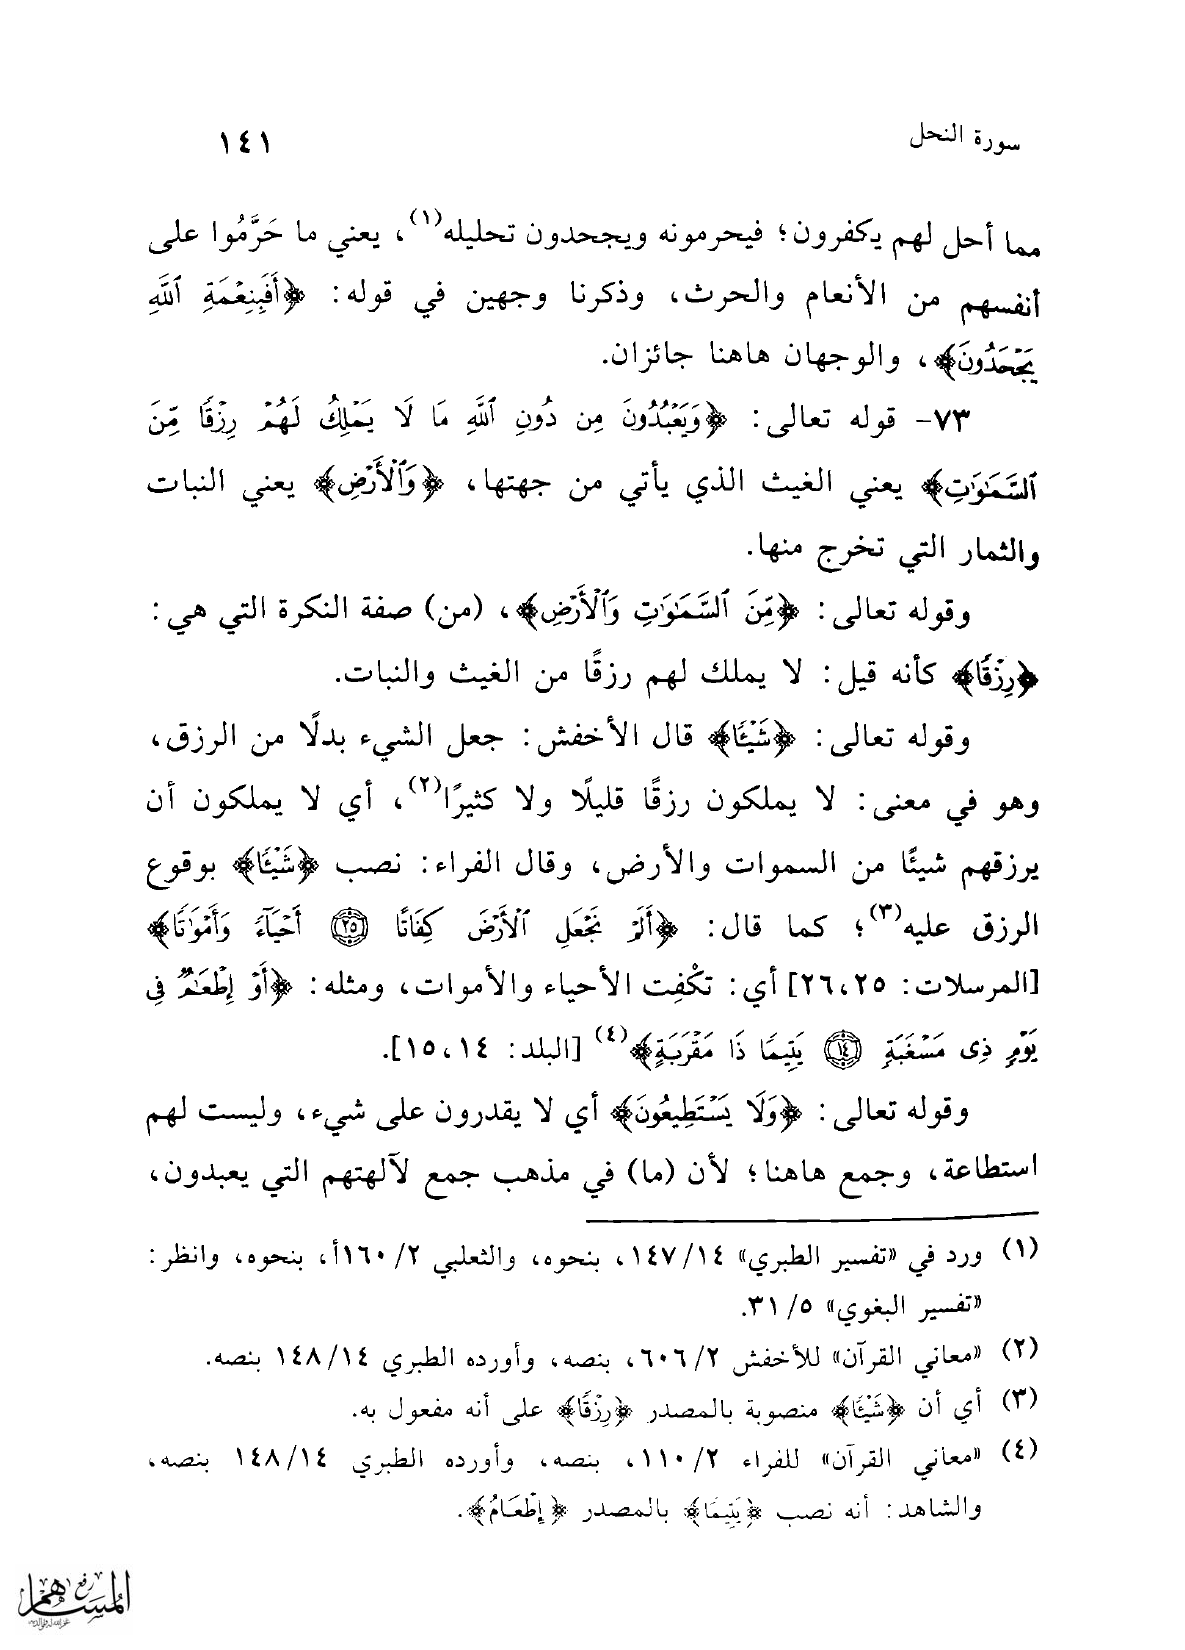 سورة النحل
١٤١
مما أحل لهم يكفرون؛ فيحرمونه ويجحدون تحليله(١)، يعني ما حَرَّمُوا على
أنفسهم من الأنعام والحرث، وذكرنا وجهين في قوله: ﴿أَفَبِنِعْمَةِ ٱللَّهِ
يَجْحَدُونَ﴾، والوجهان هاهنا جائزان.
٧٣- قوله تعالى: ﴿وَيَعْبُدُونَ مِن دُونِ ٱللَّهِ مَا لَا يَمْلِكُ لَهُمْ رِزْقًا مِّنَ
ٱلسَّمَٰوَٰتِ﴾ يعني الغيث الذي يأتي من جهتها، ﴿وَٱلْأَرْضِ﴾ يعني النبات
والثمار التي تخرج منها.
وقوله تعالى: ﴿مِّنَ ٱلسَّمَٰوَٰتِ وَٱلْأَرْضِ﴾، (من) صفة النكرة التي هي:
﴿رِزْقًا﴾ كأنه قيل: لا يملك لهم رزقًا من الغيث والنبات.
وقوله تعالى: ﴿شَيْئًا﴾ قال الأخفش: جعل الشيء بدلًا من الرزق،
وهو في معنى: لا يملكون رزقًا قليلًا ولا كثيرًا(٢)، أي لا يملكون أن
يرزقهم شيئًا من السموات والأرض، وقال الفراء: نصب ﴿شَيْئًا﴾ بوقوع
الرزق عليه(٣)؛ كما قال: ﴿أَلَمْ نَجْعَلِ ٱلْأَرْضَ كِفَاتًا ٢٥ أَحْيَآءً وَأَمْوَٰتًا﴾
[المرسلات: ٢٥،٢٦] أي: تكْفِت الأحياء والأموات، ومثله: ﴿أَوْ إِطْعَٰمٌ فِى
يَوْمٍ ذِى مَسْغَبَةٍ ١٤ يَتِيمًا ذَا مَقْرَبَةٍ﴾(٤) [البلد: ١٤،١٥].
وقوله تعالى: ﴿وَلَا يَسْتَطِيعُونَ﴾ أي لا يقدرون على شيء، وليست لهم
استطاعة، وجمع هاهنا؛ لأن (ما) في مذهب جمع لآلهتهم التي يعبدون،
(١) ورد في «تفسير الطبري» ١٤/١٤٧، بنحوه، والثعلبي ٢/١٦٠أ، بنحوه، وانظر:
«تفسير البغوي» ٥/٣١.
(٢) «معاني القرآن» للأخفش ٢/٦٠٦، بنصه، وأورده الطبري ١٤/١٤٨ بنصه.
(٣) أي أن ﴿شَيْئًا﴾ منصوبة بالمصدر ﴿رِزْقًا﴾ على أنه مفعول به.
(٤) «معاني القرآن» للفراء ٢/١١٠، بنصه، وأورده الطبري ١٤/١٤٨ بنصه،
والشاهد: أنه نصب ﴿يَتِيمًا﴾ بالمصدر ﴿إِطْعَامٌ﴾.
رفع
المساهم